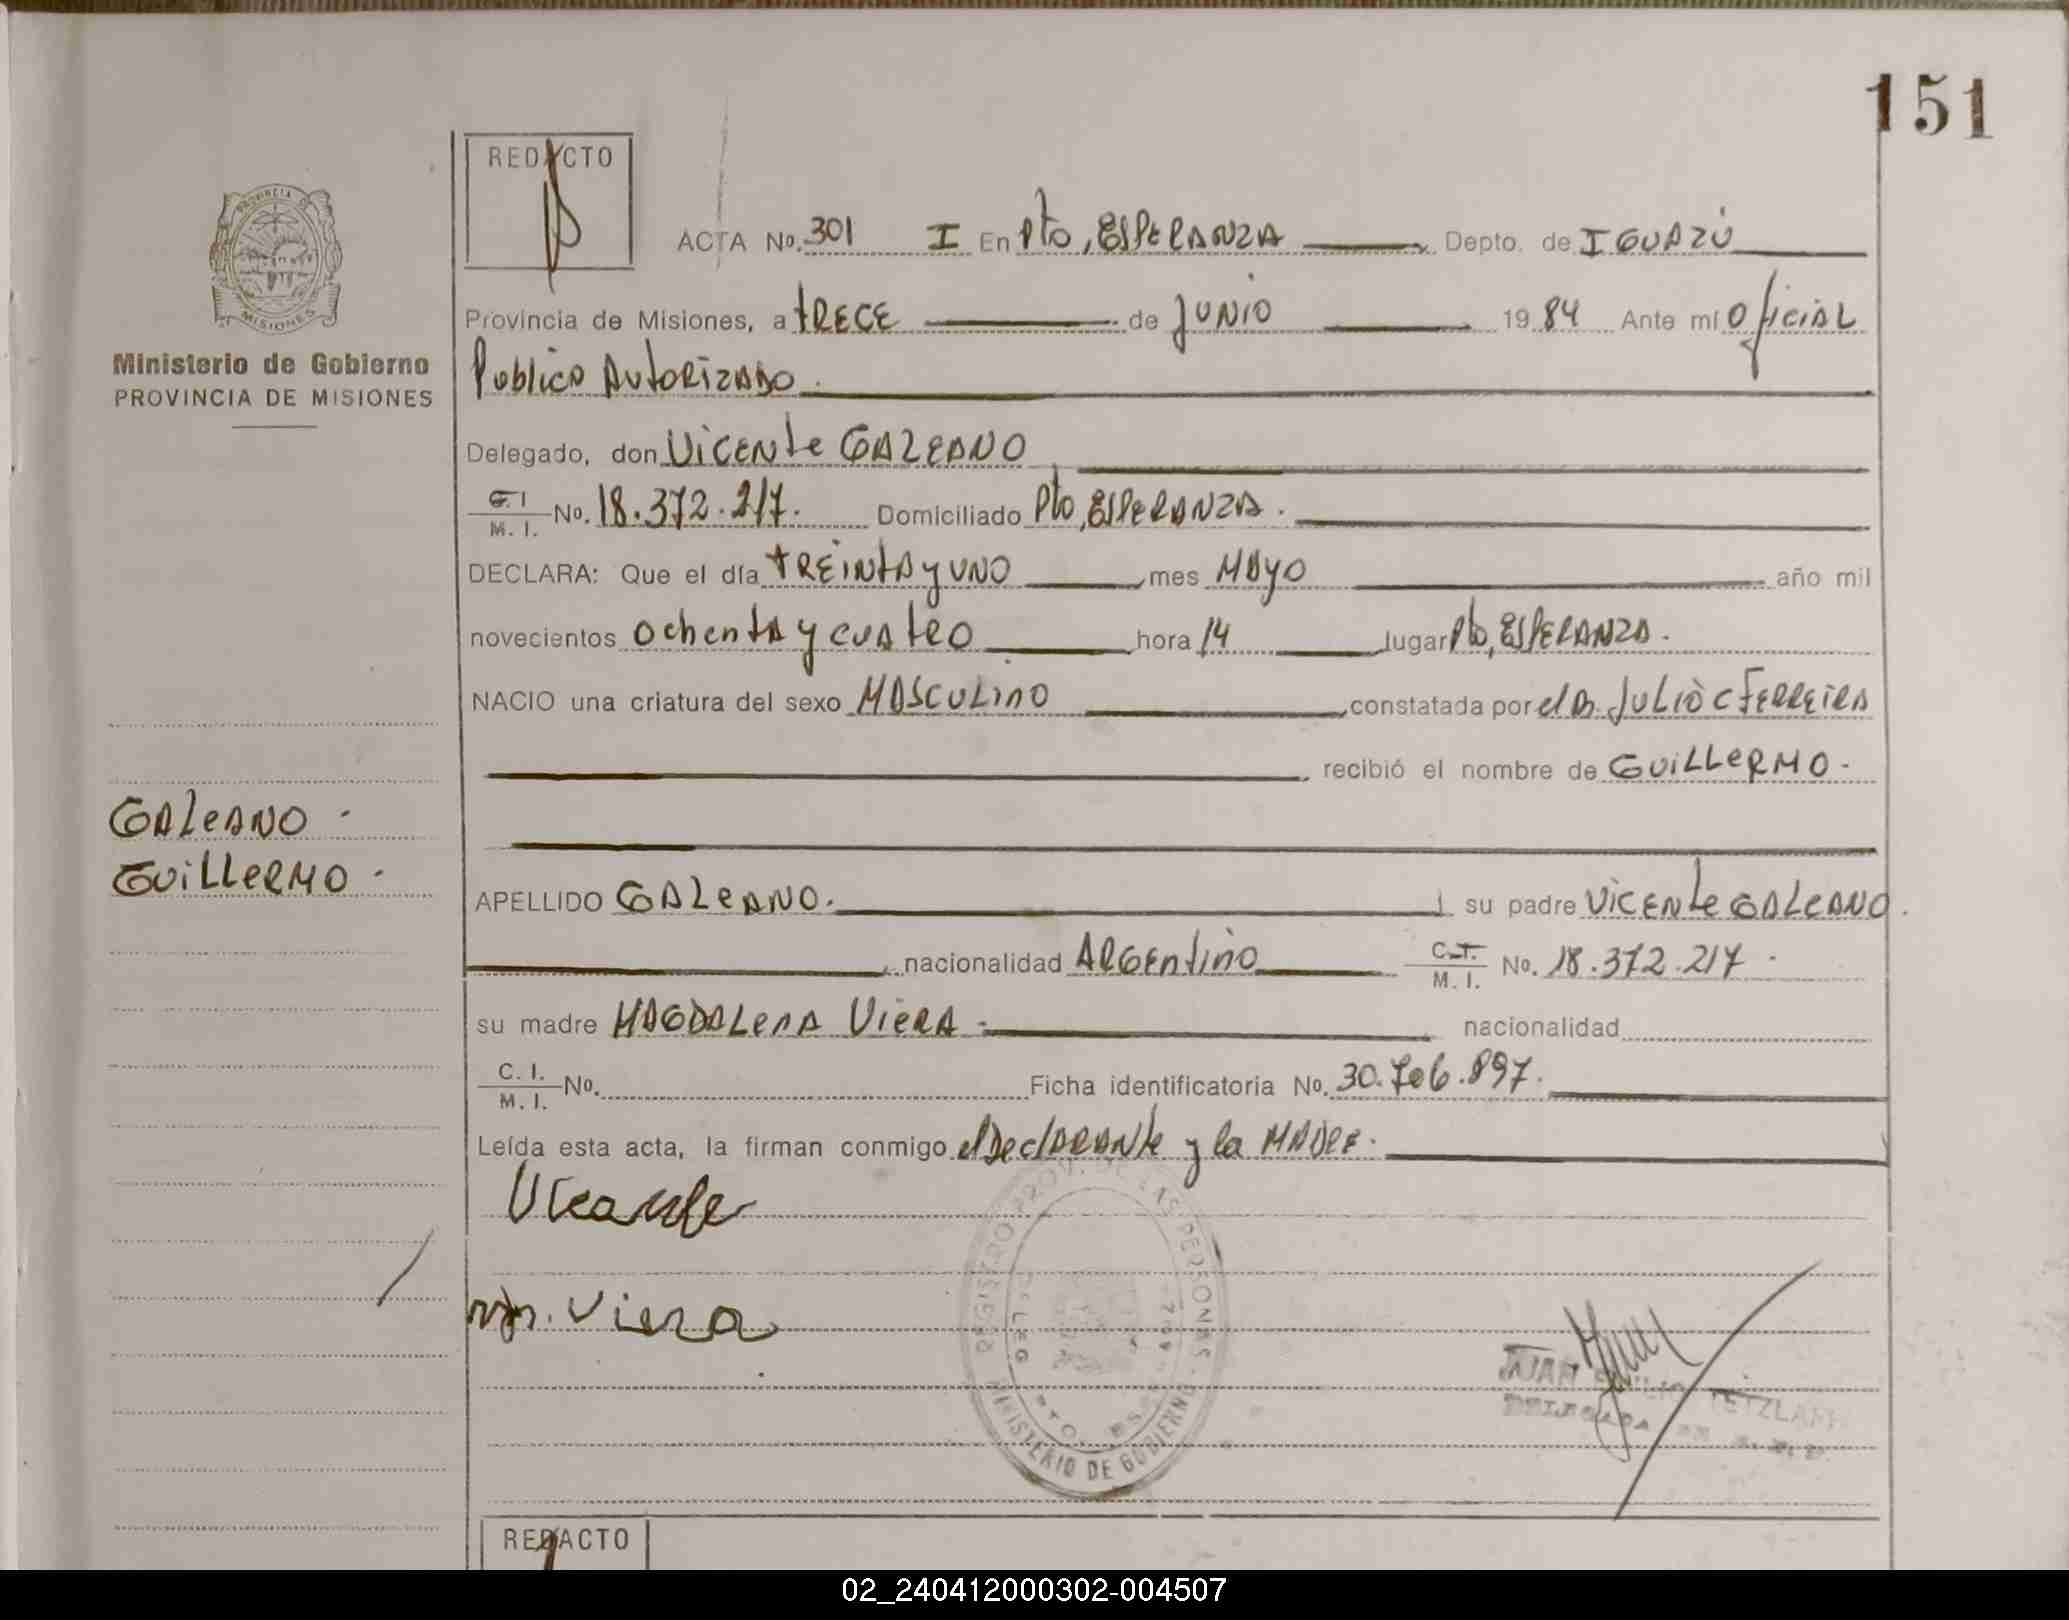 151
REDACTO
ACTA No. 301 I En Pto, ESPERANZA Depto. de IGUAZÚ
PROVINCIA DE
MISIONES
Provincia de Misiones, a tRECE de JUNIO 1984 Ante mí Oficial
Ministerio de Gobierno
PROVINCIA DE MISIONES
Publico AutoRizADO.
Delegado, don VicENte GALEANO
C.I. M. I. No. 18.372.217. Domiciliado Pto, ESPERANZA.
DECLARA: Que el día tREiNtA y UNO mes MAyO año mil
novecientos OchentA y cuAtRO hora 14 lugar Pto, ESPERANZA.
NACIO una criatura del sexo MASCULiNO constatada por el Dr. JULiO C FERREiRA
recibió el nombre de GUiLLeRMO.
GALeANO.
GUiLLeRMO.
APELLIDO GALeANO. su padre VicENte GALeANO.
nacionalidad ARGENtiNO C.I. M. I. No. 18.372.217.
su madre MAGDALeNA VieRA. nacionalidad
C. I. M. I. No. Ficha identificatoria No. 30.706.897.
Leída esta acta, la firman conmigo el DeclARANte y la MADRE.
m. Viera
REGISTRO PROV. DE LAS PERSONAS
MINISTERIO DE GOBIERNO
JUAN EMILIO TETZLAFF
REDACTO
02_240412000302-004507